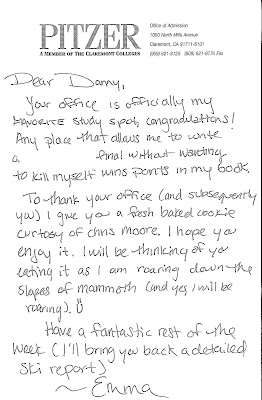 PITZER
A MEMBER OF THE CLAREMONT COLLEGES
Office of Admission
1050 North Mills Avenue
Claremont, CA 91711-6101
(909) 621-8129 (909) 621-8770 Fax
Dear Danny,
Your office is officially my
FAVORITE study spot, congradulations!
Any place that allows me to write
a final without wanting
to kill myself wins points in my book.
To thank your office (and subsequently
you) I give you a fresh baked cookie
curtosy of chris moore. I hope you
enjoy it. I will be thinking of you
eating it as I am roaring down the
slopes of mammoth (and yes, I will be
roaring). Ü
Have a fantastic rest of the
week (I'll bring you back a detailed
ski report)
~ Emma